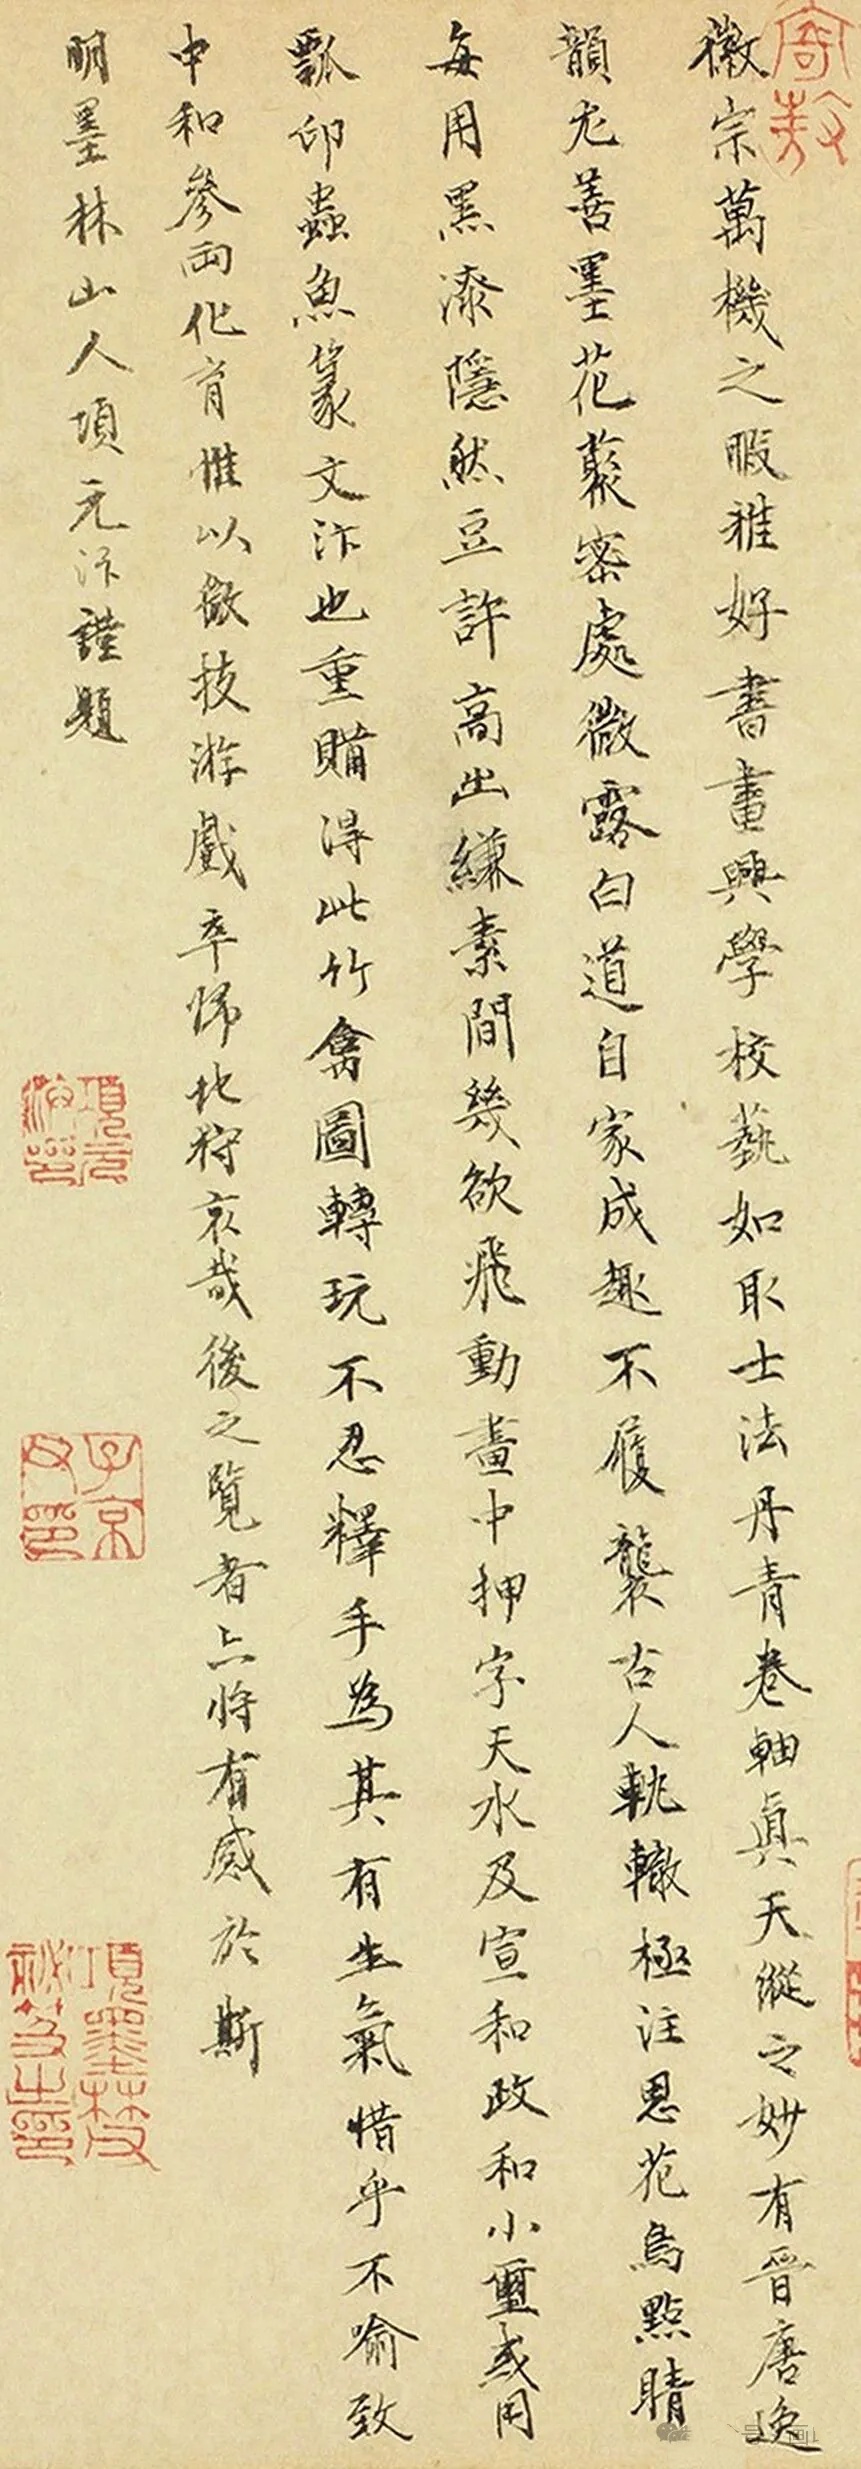 徽宗萬機之暇雅好書畫興學校藝如取士法丹青卷軸真天縱之妙有晉唐逸
韻尤善墨花藂密處微露白道自家成趣不履襲古人軌轍極注思花鳥點睛
每用黑漆隱然豆許高出縑素間幾欲飛動畫中押字天水及宣和政和小璽或用
瓢印蟲魚篆文汴也重購得此竹禽圖轉玩不忍釋手為其有生氣惜乎不喻致
中和參兩化育惟以微技游戲卒歸北狩哀哉後之覽者亦將有感於斯
明墨林山人項元汴謹題
寄敖
項元汴印
子京父印
項墨林父秘笈之印